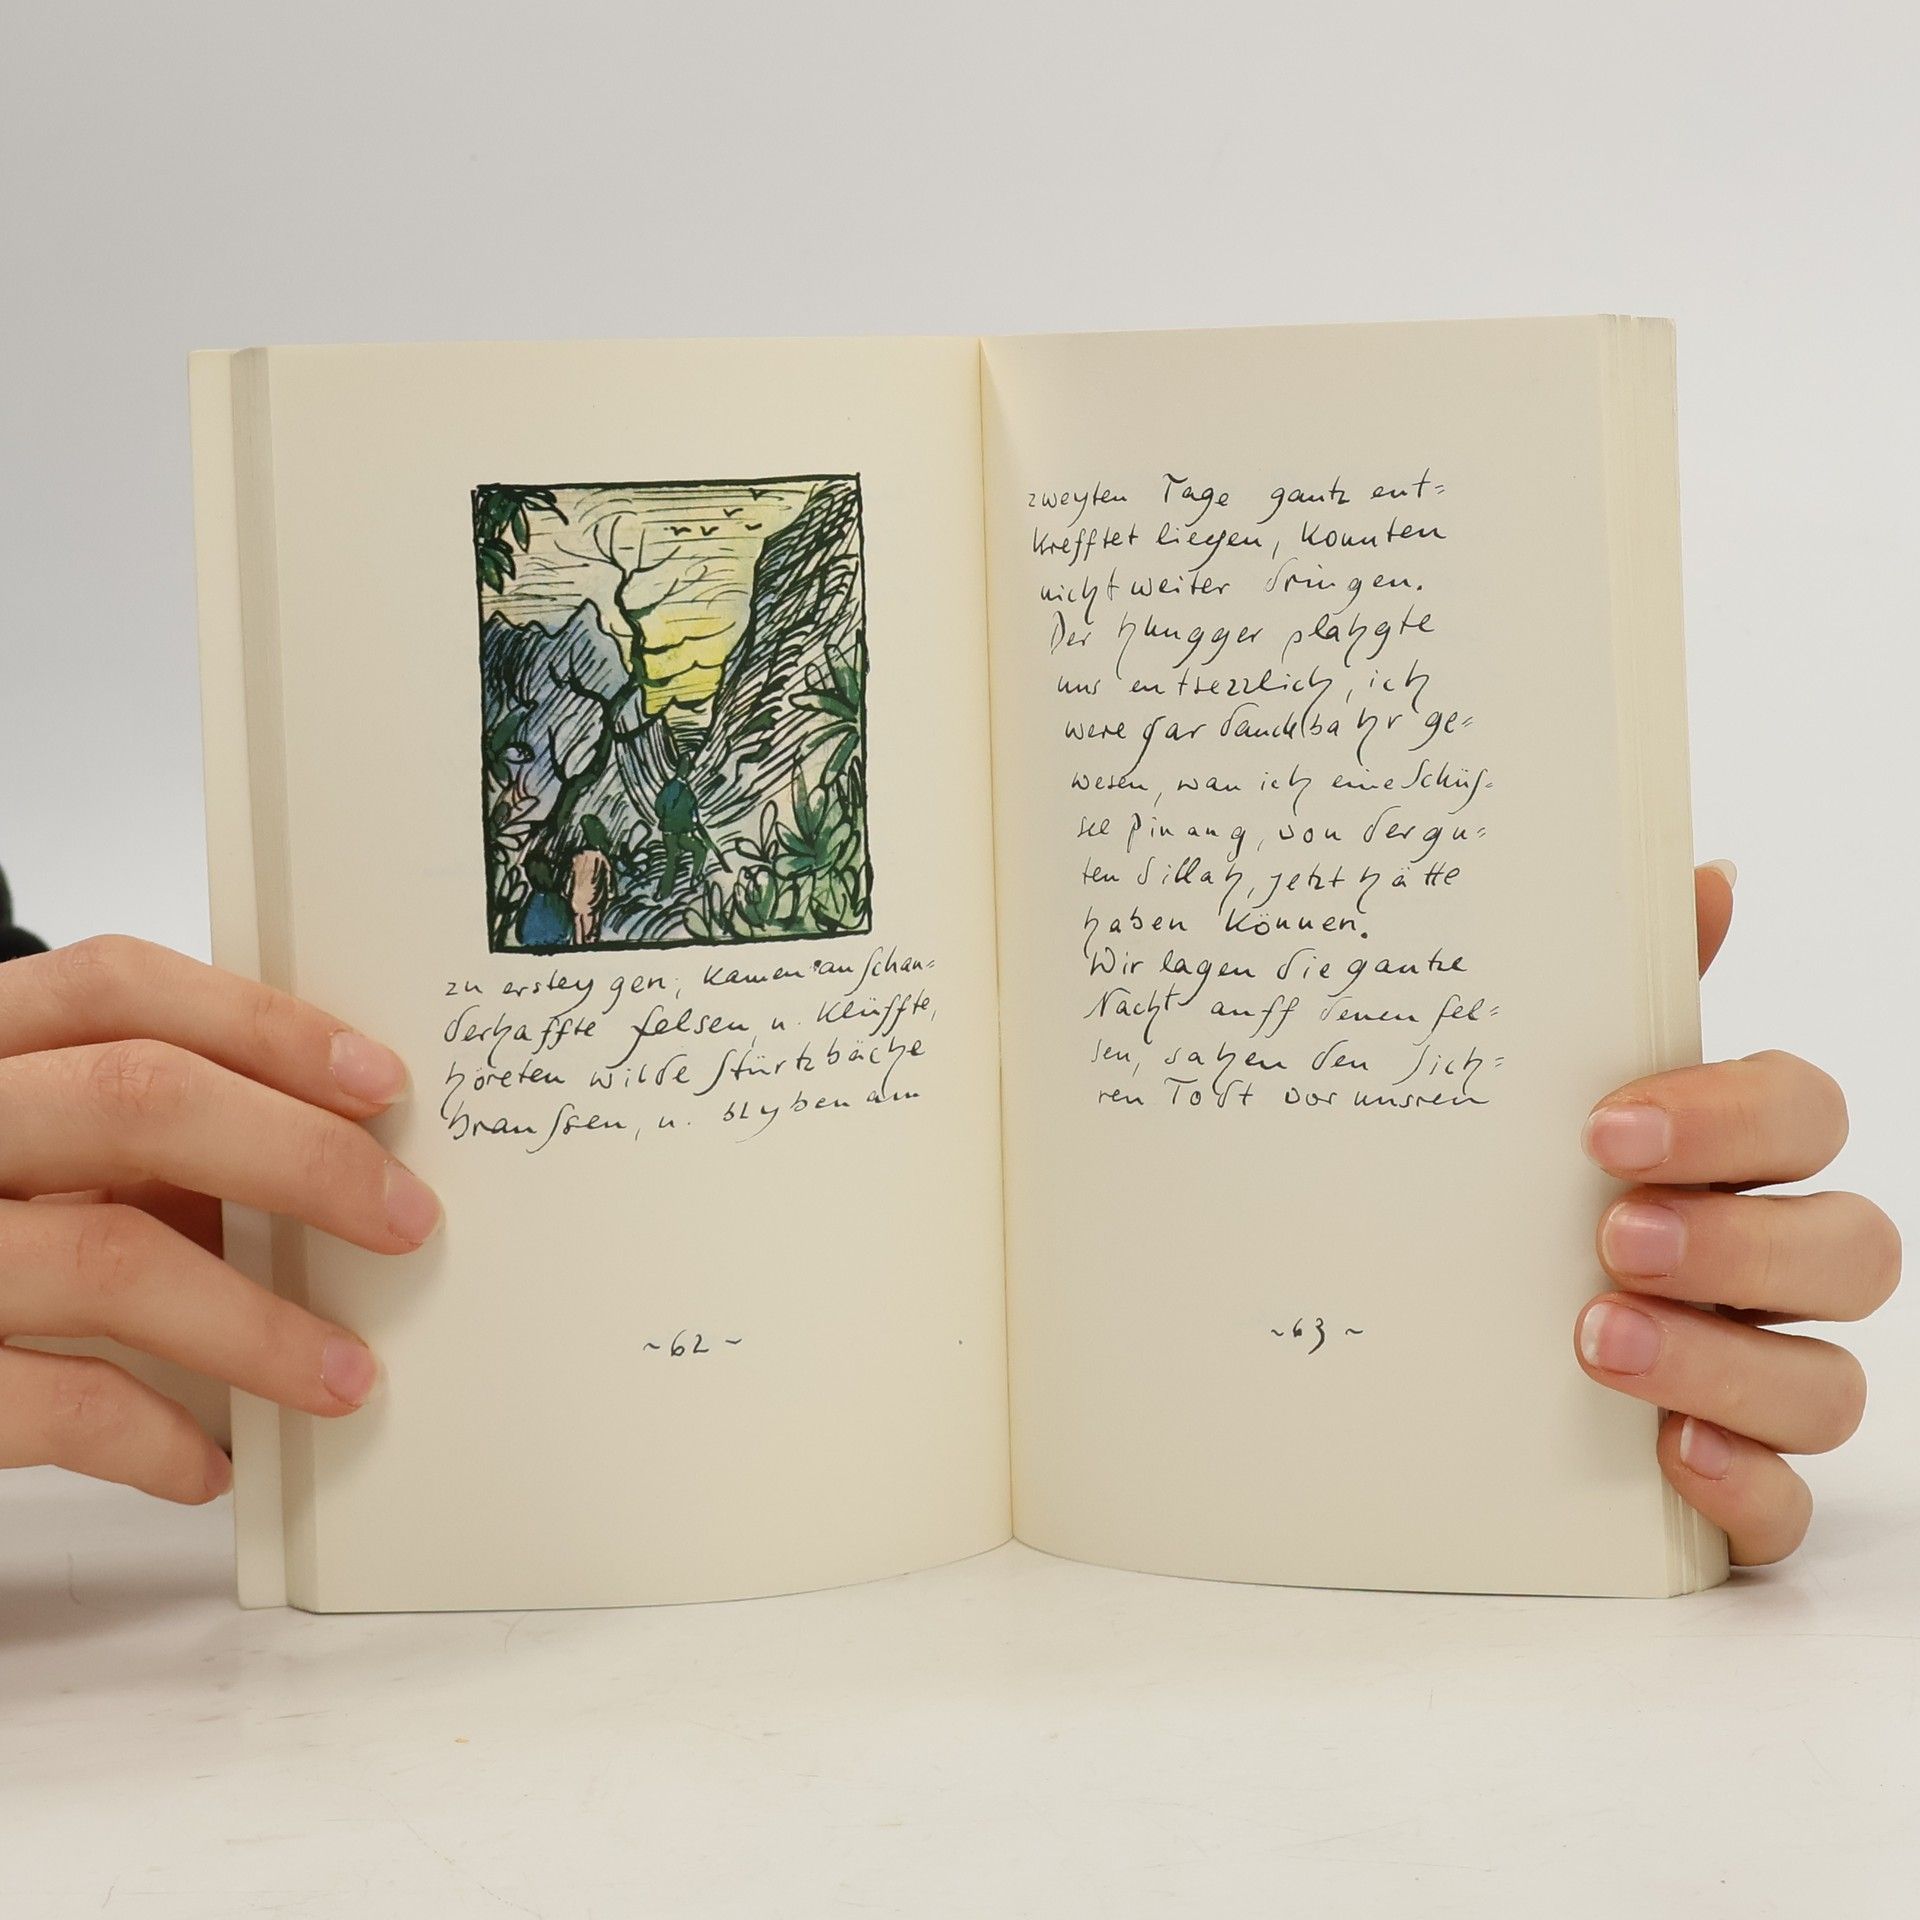 zu ersteygen; kamen an schau=
derhaffte felsen, u. klüffte,
höreten wilde stürtzbäche
braussen, u. blyben am
~62~
zweyten Tage gantz ent=
krefftet liegen, konnten
nicht weiter dringen.
Der Hungger plahgte
uns entsezzlich, ich
were gar danckbahr ge=
wesen, wan ich eine Schüs=
sel Pinang, von der gu=
ten Sillah, jetzt hätte
haben können.
Wir lagen die gantze
Nacht auff denen fel=
sen, sahen den sich=
ren Todt vor unsren
~63~